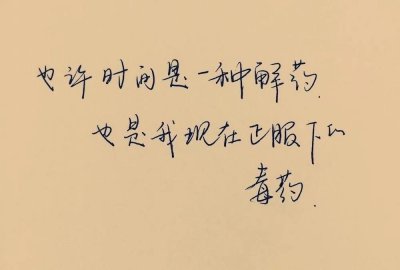 也许时间是一种解药.
也是我现在正服下的
毒药.